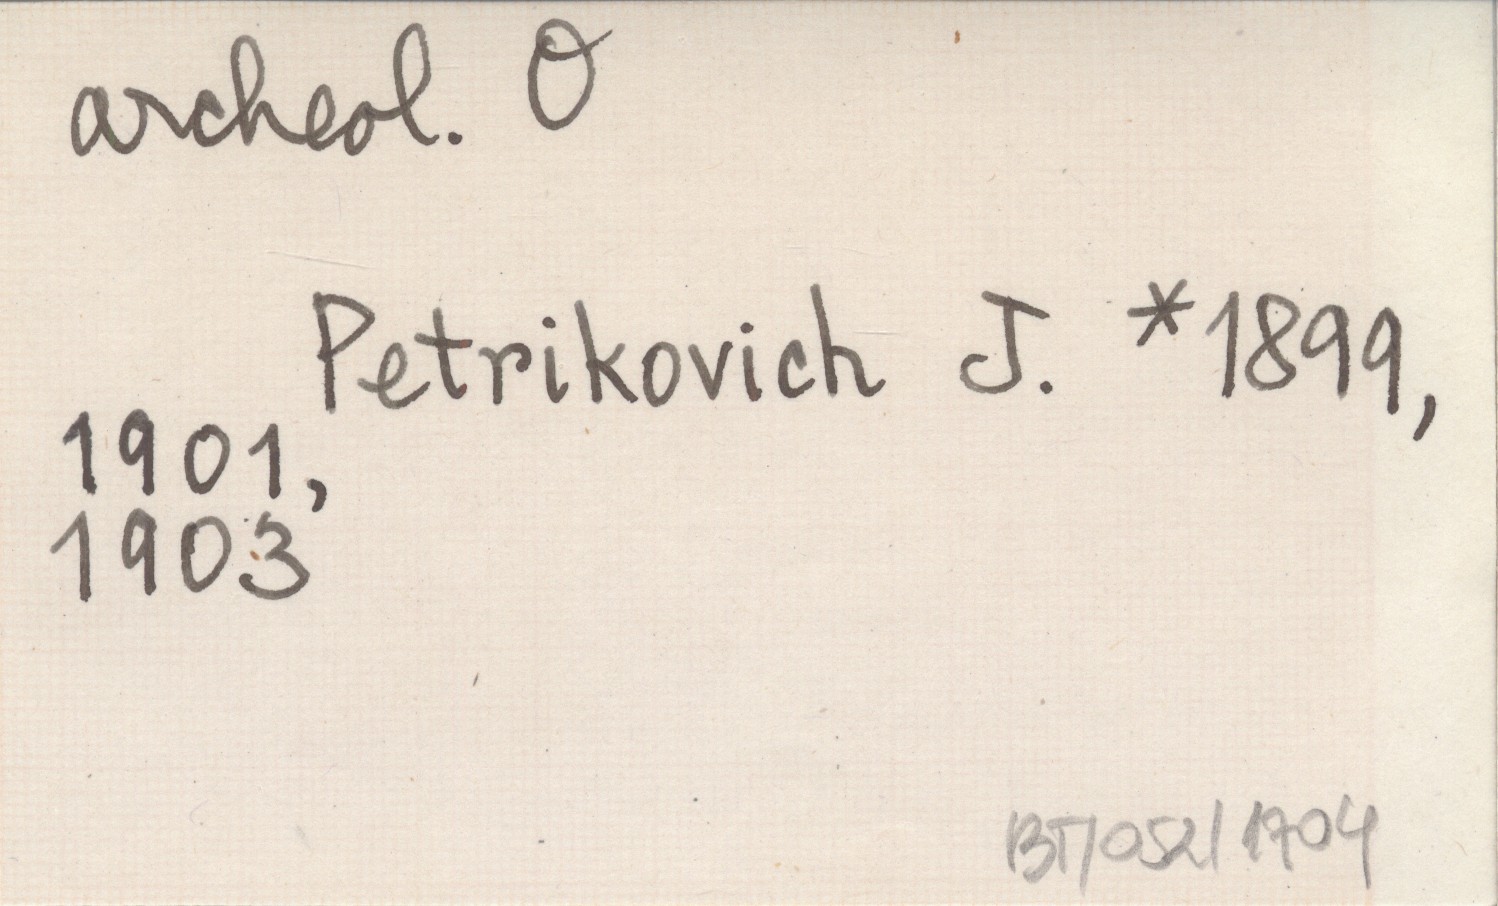 archeol. O
Petrikovich J. *1899,
1901,
1903
BT/052/1704